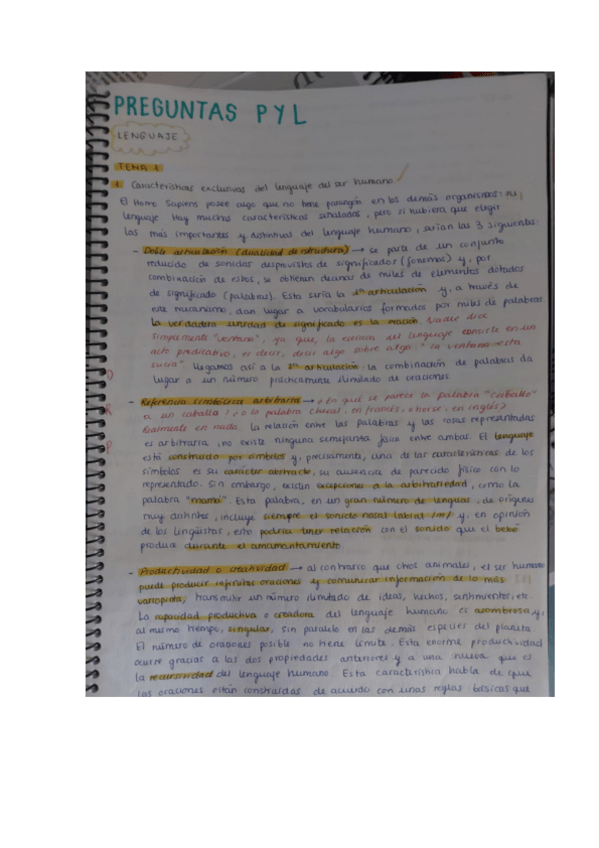 PREGUNTAS PYL
LENGUAJE
TEMA 1
1. Características exclusivas del lenguaje del ser humano
El Homo Sapiens posee algo que no tiene parangón en los demás organismos: su
lenguaje. Hay muchas características señaladas, pero si hubiera que elegir
las más importantes y distintivas del lenguaje humano, serían las 3 siguientes:
- Doble articulación (dualidad de estructura) → se parte de un conjunto
reducido de sonidos desprovistos de significados (fonemas) y, por
combinación de estos, se obtienen decenas de miles de elementos dotados
de significado (palabras). Esta sería la 1ª articulación y, a través de
este mecanismo, dan lugar a vocabularios formados por miles de palabras
La verdadera unidad de significado es la oración. Nadie dice
simplemente "ventana", ya que, la esencia del lenguaje consiste en un
acto predicativo, es decir, decir algo sobre algo: "la ventana está
sucia". Llegamos así a la 2ª articulación: la combinación de palabras da
lugar a un número prácticamente ilimitado de oraciones.
- Referencia simbólica arbitraria → ¿En qué se parece la palabra "caballo"
a un caballo? ¿o la palabra cheval, en francés, o horse, en inglés?
Realmente en nada. La relación entre las palabras y las cosas representadas
es arbitraria, no existe ninguna semejanza física entre ambas. El lenguaje
está construido por símbolos y, precisamente, una de las características de los
símbolos es su carácter abstracto, su ausencia de parecido físico con lo
representado. Sin embargo, existen excepciones a la arbitrariedad, como la
palabra "mamá". Esta palabra, en un gran número de lenguas, de orígenes
muy distintos, incluye siempre el sonido nasal labial /m/ y, en opinión
de los lingüistas, esto podría tener relación con el sonido que el bebé
produce durante el amamantamiento.
- Productividad o creatividad → al contrario que otros animales, el ser humano
puede producir infinitas oraciones y comunicar información de lo más
variopinta, transmitir un número ilimitado de ideas, hechos, sentimientos, etc.
La capacidad productiva o creadora del lenguaje humano es asombrosa y,
al mismo tiempo, singular, sin paralelo en las demás especies del planeta.
El número de oraciones posible no tiene límite. Esta enorme productividad
ocurre gracias a las dos propiedades anteriores y a una nueva que es
la recursividad del lenguaje humano. Esta característica habla de que
las oraciones están construidas de acuerdo con unas reglas básicas que